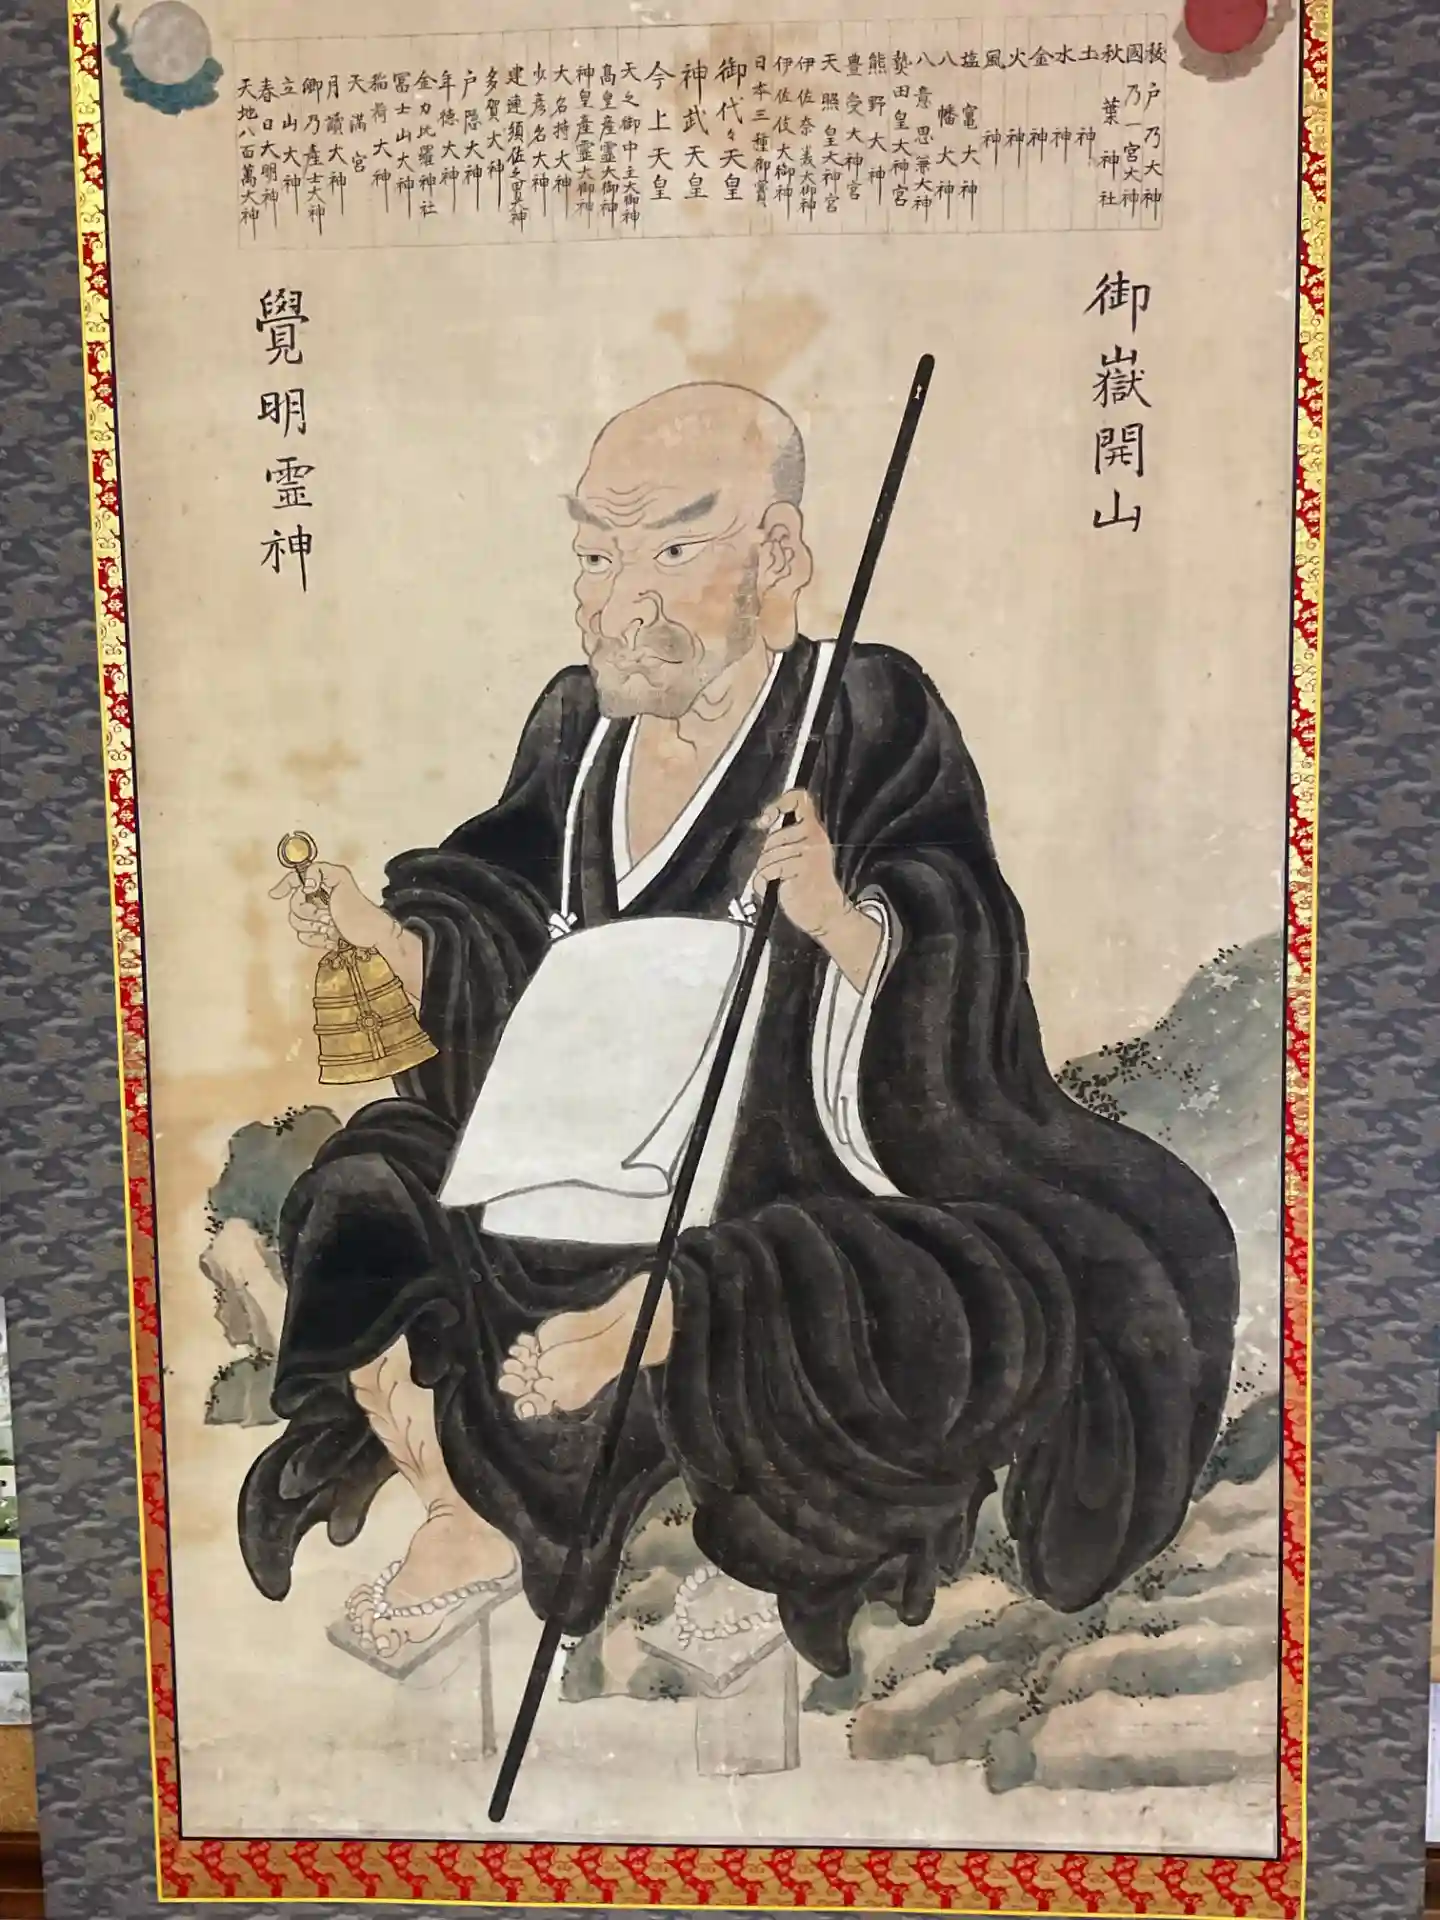 祓戸乃大神
國乃一宮大神
秋葉神社
土神
水神
金神
火神
風神
塩竃大神
八幡大神
八意思兼大神
熱田皇大神宮
熊野大神
豊受大神宮
天照皇大神宮
伊佐奈美大御神
伊佐伎大御神
日本三種御寳
御代々天皇
神武天皇
今上天皇
天之御中主大御神
髙皇産靈大御神
神皇産靈大御神
大名持大神
少彦名大神
建連須佐之男大神
多賀大神
戸隠大神
年徳大神
金力比羅神社
冨士山大神
稲荷大神
天滿宮
月讀大神
郷乃産土大神
立山大神
春日大明神
天地八百萬大神
御嶽開山
覺明霊神